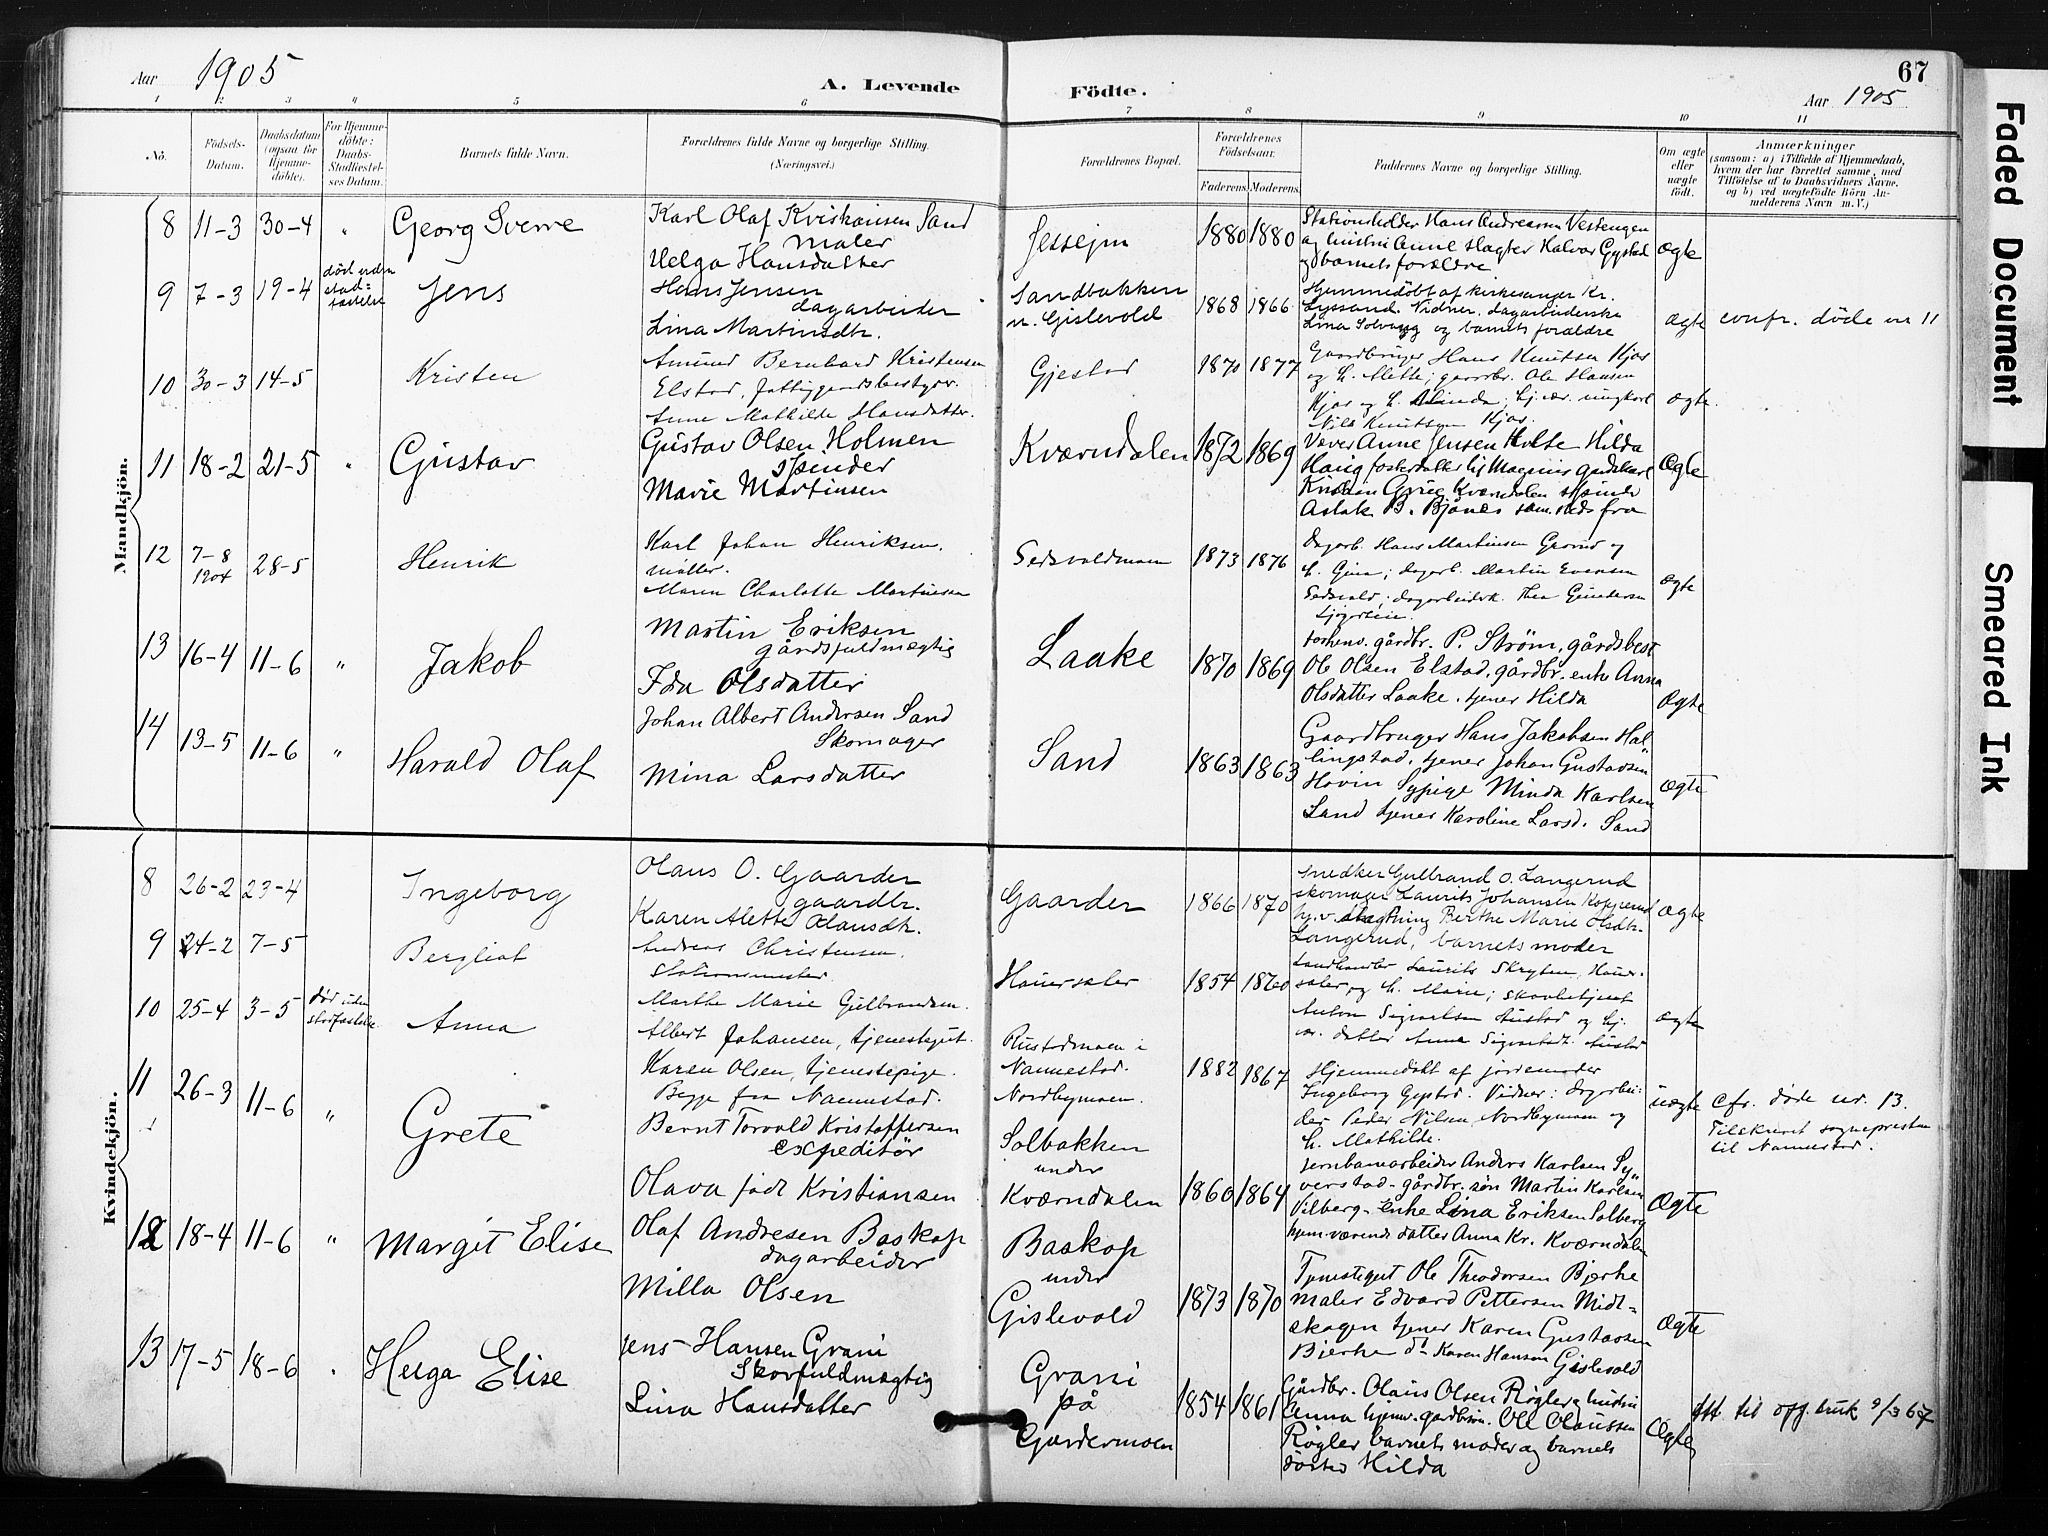 Aar 1905
A. Levende Födte.
67
Aar 1905
1 2 3 4 5 6 7 8 9 10 11
No.
Födsels-
Datum.
Daabsdatum
(ogsaa for
Hjemme-
döbte).
For Hjemme-
döbte:
Daabs-
Stadfæstel-
ses Datum.
Barnets fulde Navn.
Forældrenes fulde Navne og borgerlige Stilling.
(Næringsvei.)
Forældrenes Bopæl.
Forældrenes
Födselsaar.
Faderens. Moderens.
Faddernes Navne og borgerlige Stilling.
Om ægte
eller
uægte
födt.
Anmærkninger
(saasom: a) i Tilfælde af Hjemmedaab,
hvem der har forrettet samme, med
Tilföielse af to Daabsvidners Navne,
og b) ved uægtefödte Börn An-
melderens Navn m. V.)
Mandkjön.
8 11-3 30-4 " Georg Sverre
Karl Olaf Kristiansen Sand
maler
Helga Hansdatter
Jessejm
1880 1880
Stationsholder Hans Andreassen Vestengen
og hustru Anne slagter Halvor Gystad
og barnets forældre
ægte
9 7-3 19-4
død uden
stad=
fæstelse
Jens
Hans Jensen
dagarbeider
Lina Martinsdtr.
Sandbakken
u. Gislevold
1868 1866
Hjemmedöbt af kirkesanger Kr.
Lyssand. Vidner, dagarbeiderske
Lina Solvang og barnets forældre
ægte
confr. døde nr 11
10 30-3 14-5 Kristen
Amund Bernhard Kristensen
Elstad, fattiggaardsbestyr.
Anne Mathilde Hansdatter.
Gjestad
1870 1877
Gaardbruger Hans Knutsen Kjos
og h. Mette; gaardbr. Ole Hansen
Kjos og h. Alinda; hj.vær. ungkarl
Nils Knutsen Kjos.
ægte.
11 18-2 21-5 " Gustav
Gustav Olsen Holmen
spinder
Marie Martinsen
Kværndalen
1872 1869
Væver Anne Jensen Holte Hilda
Haug fosterdatter hj Magnus
Kristian Grieg Kværndalen spinder
Aslak B. Bjånes sam. steds fra
Ægte
12 7-8
1904
28-5 Henrik
Karl Johan Henriksen,
møller.
Maren Charlotte Martinsen
Sedsvoldmoen
1873 1876
Dagarb. Hans Martinsen Grorud og
h. Gina; dagarb. Martin Evensen
Sedsvold; dagarbeidersk. Thea Gundersen
ægte
13 16-4 11-6 " Jakob
Martin Eriksen
gårdsfuldmægtig
Ida Olsdatter
Laake
1870 1869
forhenv. gårdbr. P. Strøm, gårdsbest
Ole Olsen Elstad, gårdbr. enke Anna
Olsdatter Laake. tjener Hilda
Ægte
14 13-5 11-6 " Harald Olaf
Johan Albert Andersen Sand
Skomager
Mina Larsdatter
Sand
1863 1863
Gaardbruger Hans Jakobsen Hal„
lingstad, tjener Johan Gustavsen
Hovin Sypige Minda Karlsen
Sand tjener Karoline Larsd. Sand
Ægte
Kvindekjön.
8 26-2 23-4 Ingeborg
Olaus O. Gaarder
gaardbr.
Karen Alette Olausdtr.
Gaarder
1866 1870
Snedker Gulbrand O. Langerud
skomager Laurits Johansen Kopperud
hj.v. Berthe Marie Olsdtr.
Langerud, barnets moder
ægte
9 24-2 7-5 Bergliot
Andreas Christensen,
Stationsmester
Marthe Marie Gulbrandsen.
Hauersæter
1854 1860
Landhandler Laurits Skryten, Hauer-
sæter, og h. Marie; skovbetjent
Anton Sigvartsen Austad og hj.
vær. datter Anna Sigvartsdt. Austad
ægte
10 25-4 3-5
død uden
stadfæstelse
Anna
Albert Johansen, tjenestegut.
Karen Olsen, tjenestepige.
Begge fra Nannestad.
Rustadmoen i
Nannestad.
Nordbymoen.
1882 1867
Hjemmedöbt af jordemoder
Ingeborg Gystad. Vidner: Dagarbei-
der Peder Nilsen Nordbymoen og
h. Mathilde.
uægte
Cfr. døde nr. 13.
Tilskrevet sognepresten
til Nannestad.
11 26-3 11-6 " Grete
Bernt Torvald Kristoffersen
expeditør
Olava født Kristiansen
Solbakken
under
Kværndalen
1860 1864
jernbanearbeider Anders Karlsen Sy„
verstad - gårdbr. søn Martin Karlsen
Vilberg - Enke Lina Eriksen Solberg
hjem-værende datter Anna Kr. Kværndalen
Ægte
12 18-4 11-6 " Margit Elise
Olaf Andresen Baskop
dagarbeider
Milla Olsen
Baskop
under
Gislevold
1873 1870
Tjenestegut Ole Theodorsen Bjerke
maler Edvard Pettersen Midt=
skogen tjener Karen Gustavsen
Bjerke do Karen Hansen Gislevold
Ægte
13 17-5 18-6 " Helga Elise
Jens Hansen Grani
Skovfuldmægtig
Lina Hansdatter
Grani
på
Gardermoen
1854 1861
Gårdbr. Olaus Olsen Røgler og hustru
Anna hjemv. gardbrsøn. Ole Olaussen
Røgler barnets moder og barnets
søster Hilda
Ægte
Att til opg. bruk 9/3 67
Faded Document
Smeared Ink